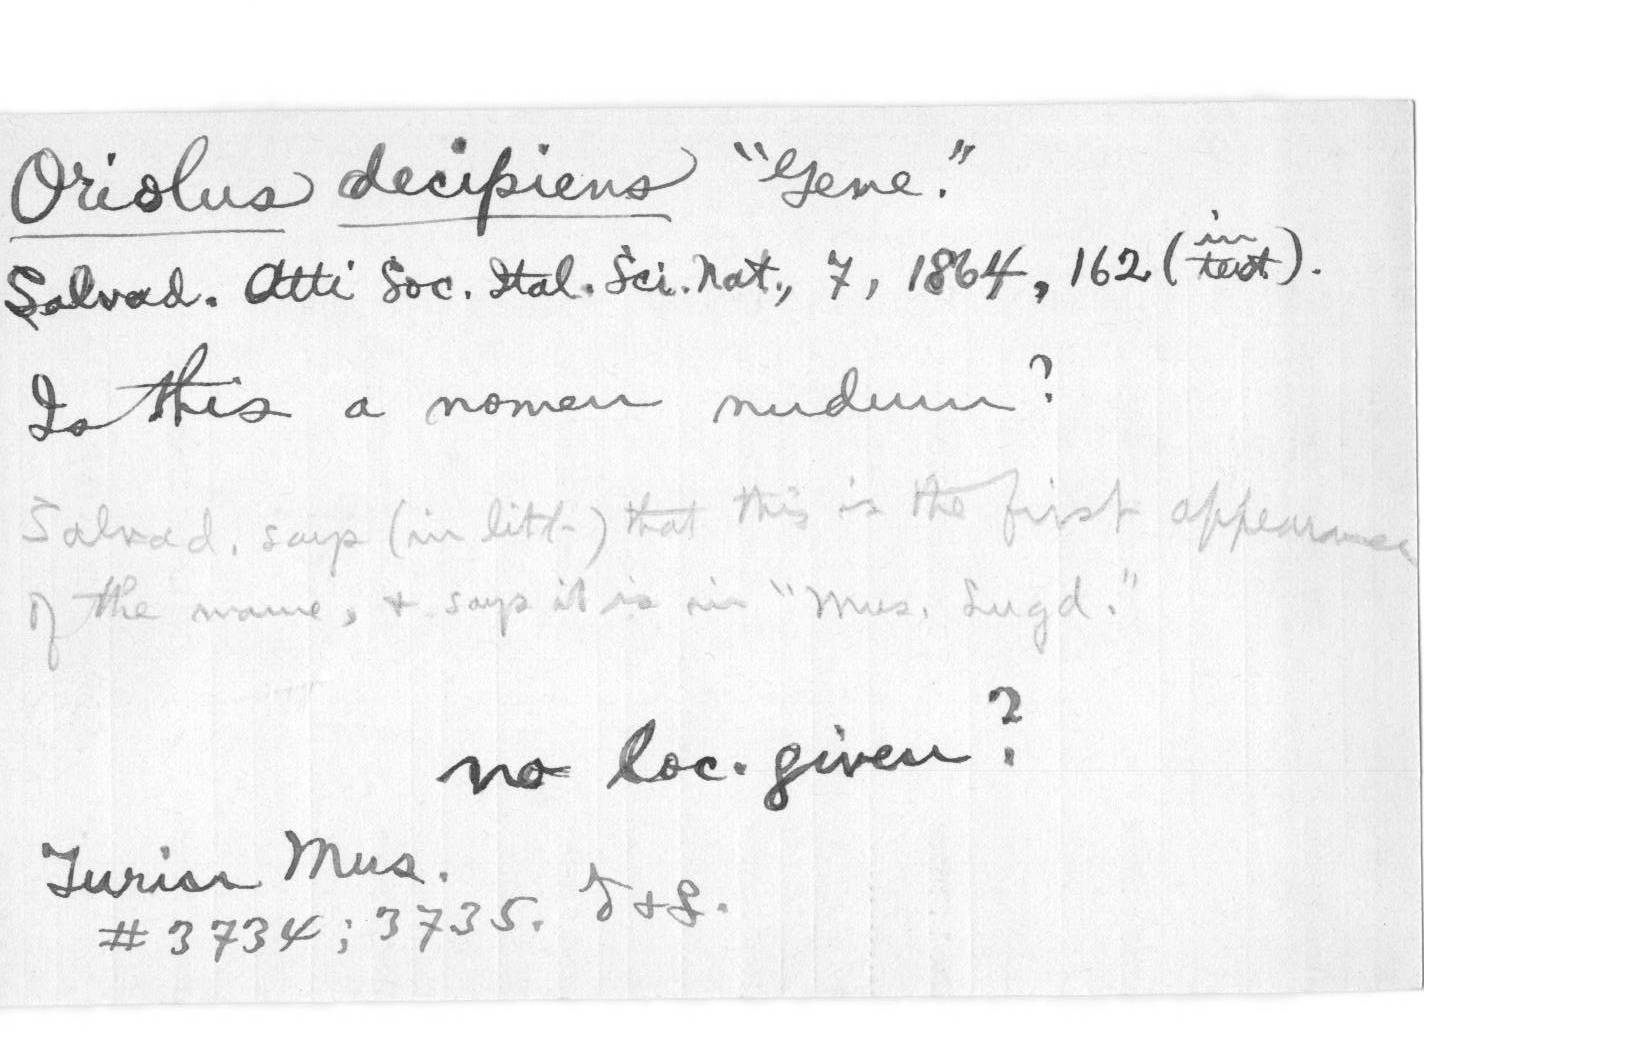 Oriolus decipiens "Gene."
Salvad. Atti Soc. Ital. Sci. Nat., 7, 1864, 162 (in text).
Is this a nomen nudum?
Salvad. says (in litt.) that this is the first appearance
of the name, & says it is in "Mus. Lugd."
no loc. given?
Turin Mus.
# 3734; 3735. ♂ + ♀.